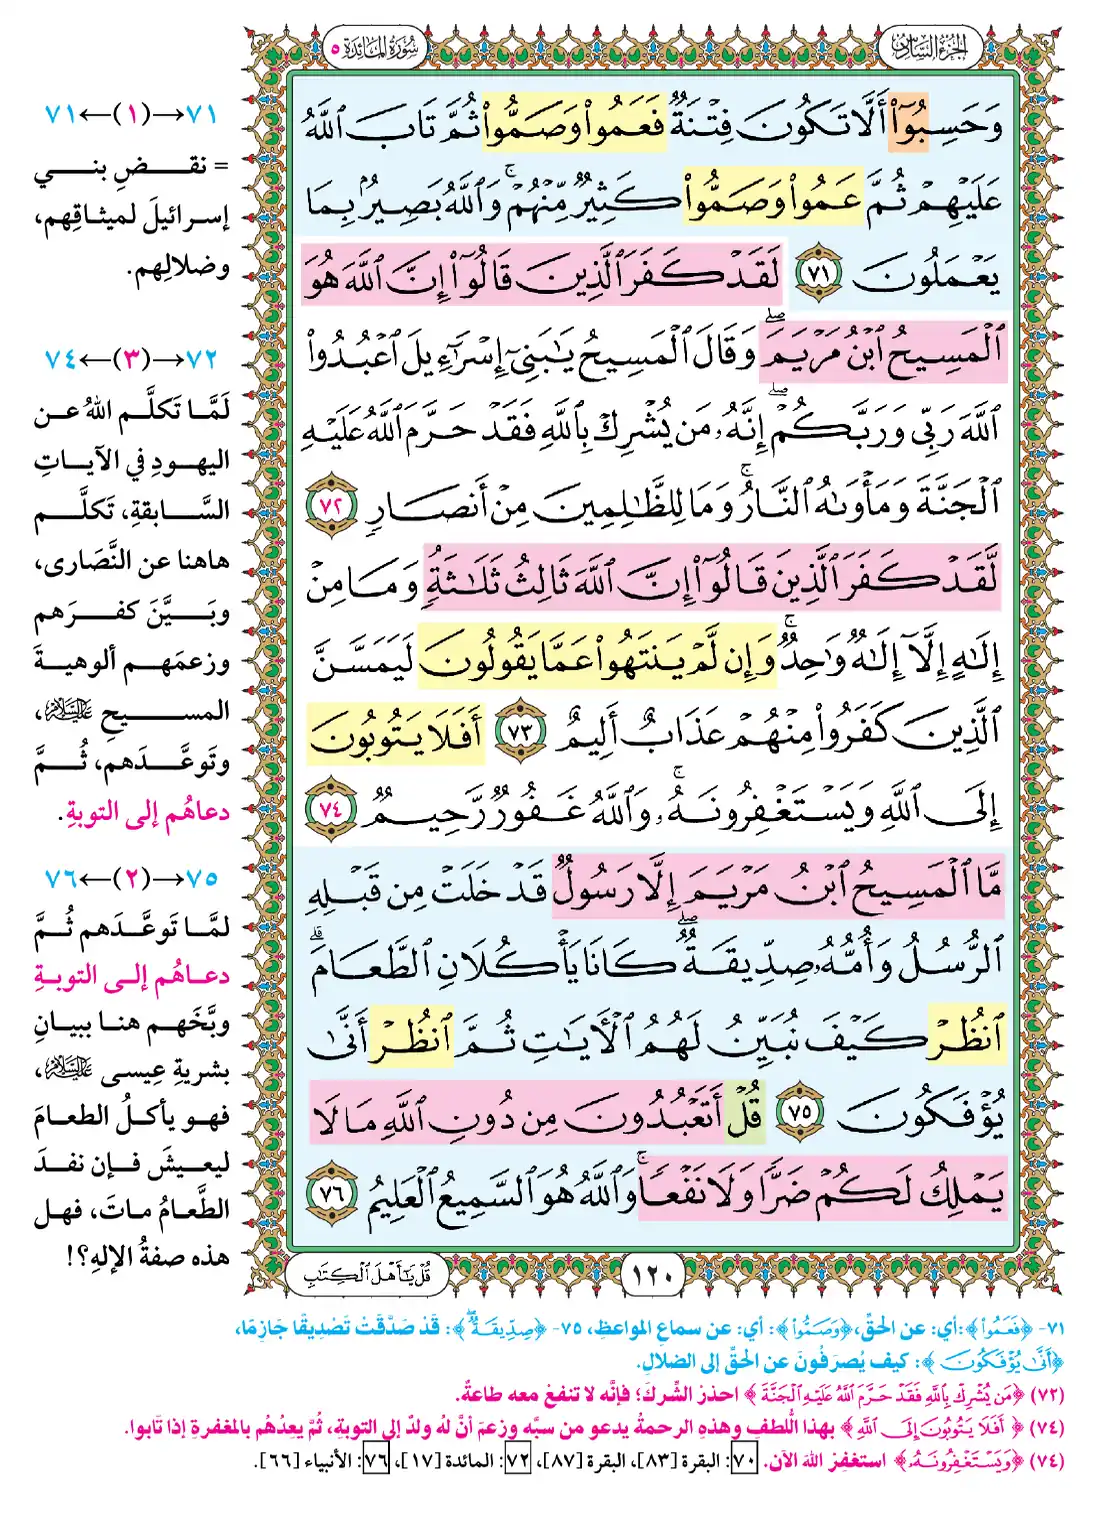 الجزء السادس
سورة المائدة ٥
وَحَسِبُوٓا۟ أَلَّا تَكُونَ فِتْنَةٌ فَعَمُوا۟ وَصَمُّوا۟ ثُمَّ تَابَ ٱللَّهُ
عَلَيْهِمْ ثُمَّ عَمُوا۟ وَصَمُّوا۟ كَثِيرٌ مِّنْهُمْ ۚ وَٱللَّهُ بَصِيرٌۢ بِمَا
يَعْمَلُونَ ٧١ لَقَدْ كَفَرَ ٱلَّذِينَ قَالُوٓا۟ إِنَّ ٱللَّهَ هُوَ
ٱلْمَسِيحُ ٱبْنُ مَرْيَمَ ۖ وَقَالَ ٱلْمَسِيحُ يَـٰبَنِىٓ إِسْرَٰٓءِيلَ ٱعْبُدُوا۟
ٱللَّهَ رَبِّى وَرَبَّكُمْ ۖ إِنَّهُۥ مَن يُشْرِكْ بِٱللَّهِ فَقَدْ حَرَّمَ ٱللَّهُ عَلَيْهِ
ٱلْجَنَّةَ وَمَأْوَىٰهُ ٱلنَّارُ ۖ وَمَا لِلظَّـٰلِمِينَ مِنْ أَنصَارٍ ٧٢
لَّقَدْ كَفَرَ ٱلَّذِينَ قَالُوٓا۟ إِنَّ ٱللَّهَ ثَالِثُ ثَلَـٰثَةٍ ۘ وَمَا مِنْ
إِلَـٰهٍ إِلَّآ إِلَـٰهٌ وَٰحِدٌ ۚ وَإِن لَّمْ يَنتَهُوا۟ عَمَّا يَقُولُونَ لَيَمَسَّنَّ
ٱلَّذِينَ كَفَرُوا۟ مِنْهُمْ عَذَابٌ أَلِيمٌ ٧٣ أَفَلَا يَتُوبُونَ
إِلَى ٱللَّهِ وَيَسْتَغْفِرُونَهُۥ ۚ وَٱللَّهُ غَفُورٌ رَّحِيمٌ ٧٤
مَّا ٱلْمَسِيحُ ٱبْنُ مَرْيَمَ إِلَّا رَسُولٌ قَدْ خَلَتْ مِن قَبْلِهِ
ٱلرُّسُلُ وَأُمُّهُۥ صِدِّيقَةٌ ۖ كَانَا يَأْكُلَانِ ٱلطَّعَامَ ۗ
ٱنظُرْ كَيْفَ نُبَيِّنُ لَهُمُ ٱلْـَٔايَـٰتِ ثُمَّ ٱنظُرْ أَنَّىٰ
يُؤْفَكُونَ ٧٥ قُلْ أَتَعْبُدُونَ مِن دُونِ ٱللَّهِ مَا لَا
يَمْلِكُ لَكُمْ ضَرًّا وَلَا نَفْعًا ۚ وَٱللَّهُ هُوَ ٱلسَّمِيعُ ٱلْعَلِيمُ ٧٦
١٢٠
قُلْ يَا أَهْلَ الْكِتَابِ
٧١→(١)←٧١
= نقضِ بني
إسرائيلَ لميثاقِهم،
وضلالِهم.
٧٢→(٣)←٧٤
لَمَّا تَكلَّم اللهُ عن
اليهودِ في الآياتِ
السَّابقةِ، تَكلَّم
هاهنا عن النَّصَارى،
وبَيَّنَ كفرَهم
وزعمَهم ألوهيةَ
المسيحِ عليه السلام،
وتَوعَّدَهم، ثُمَّ
دعاهُم إلى التوبةِ.
٧٥→(٢)←٧٦
لمَّا تَوعَّدَهم ثُمَّ
دعاهُم إلى التوبةِ
وبَّخَهم هنا ببيانِ
بشريةِ عِيسى عليه السلام،
فهو يأكلُ الطعامَ
ليعيشَ فإن نفدَ
الطَّعامُ ماتَ، فهل
هذه صفةُ الإلهِ؟!
٧١- ﴿فَعَمُوا۟﴾: أي: عن الحَقِّ، ﴿وَصَمُّوا۟﴾: أي: عن سماعِ المواعظِ، ٧٥- ﴿صِدِّيقَةٌ ۖ﴾: قَدْ صَدَّقَتْ تَصْدِيقًا جَازِمًا،
﴿أَنَّىٰ يُؤْفَكُونَ﴾: كيف يُصرَفُونَ عن الحَقِّ إلى الضلالِ.
(٧٢) ﴿مَن يُشْرِكْ بِٱللَّهِ فَقَدْ حَرَّمَ ٱللَّهُ عَلَيْهِ ٱلْجَنَّةَ﴾ احذرْ الشِّركَ؛ فإنَّه لا تنفعُ معه طاعةٌ.
(٧٤) ﴿أَفَلَا يَتُوبُونَ إِلَى ٱللَّهِ﴾ بهذا اللُّطفِ وهذهِ الرحمةُ يدعو من سبَّه وزعمَ أنَّ لهُ ولدٌ إلى التوبةِ، ثُمَّ يعدُهُم بالمغفرةِ إذا تَابوا.
(٧٤) ﴿وَيَسْتَغْفِرُونَهُۥ﴾ استغفِرْ اللهَ الآن. ٧٠: البقرة [٨٣]، البقرة [٨٧]، ٧٢: المائدة [١٧]، ٧٦: الأنبياء [٦٦].